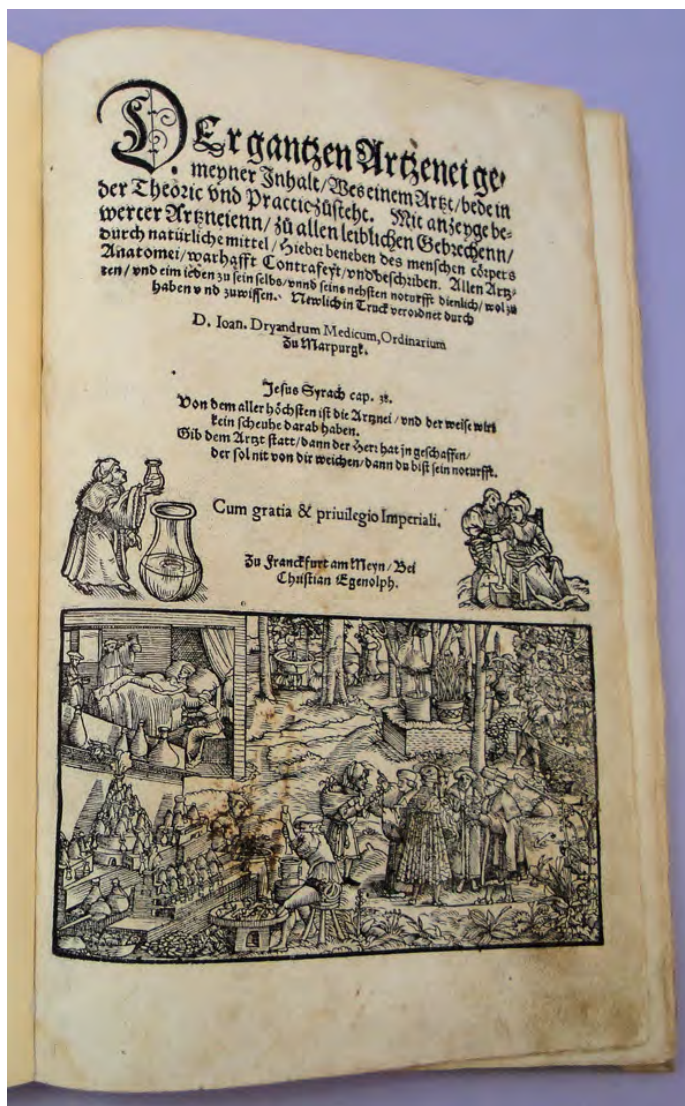 DEr gantzen Artzenei ge⸗
meyner Inhalt / Wes einem Artzt / bede in
der Theoric vnd Practic zůsteht. Mit anzeyge be⸗
werter Artzneienn / zů allen leiblichen Gebrechenn /
durch natürliche mittel / Hiebei beneben des menschen cörpers
Anatomei / warhafft Contrafeyt / vnd beschriben. Allen Artz⸗
ten / vnd eim ieden zu sein selbs / vnnd seins nehsten noturfft dienlich / wol zu
haben vnd zuwissen. Newlich in Truck verordnet durch
D. Ioan. Dryandrum Medicum, Ordinarium
Zu Marpurgk.
Jesus Syrach cap. 38.
Von dem aller höchsten ist die Artznei / vnd der weise wirt
kein scheuhe darab haben.
Gib dem Artzt statt / dann der Herr hat jn geschaffen /
der sol nit von dir weichen / dann du bist sein noturfft.
Cum gratia & priuilegio Imperiali.
Zu Franckfurt am Meyn / Bei
Christian Egenolph.